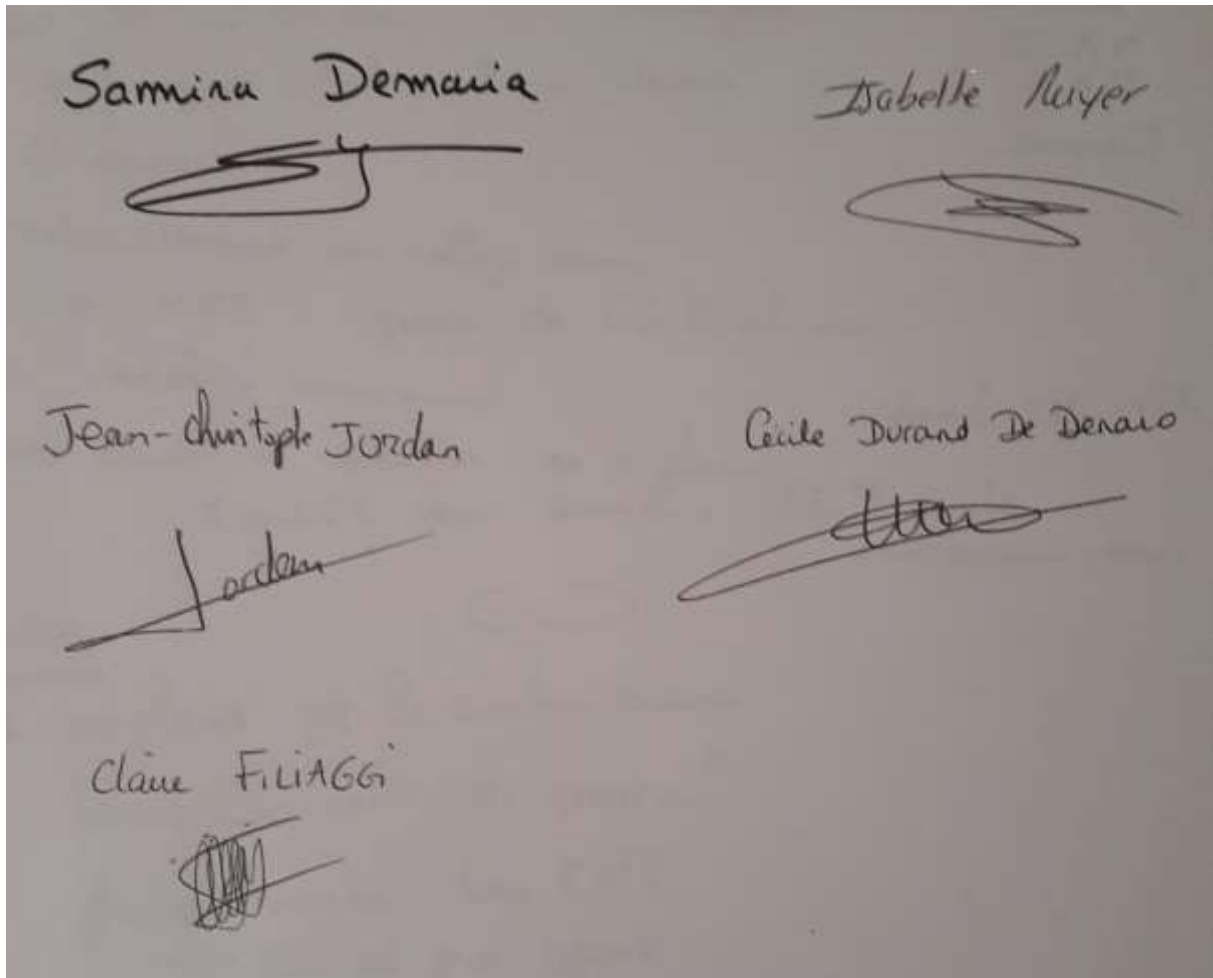 Samira Demaria
Isabelle Ruyer
Jean-Christophe Jordan
Cécile Durand De Denaro
Jordan
Claire FILIAGGI